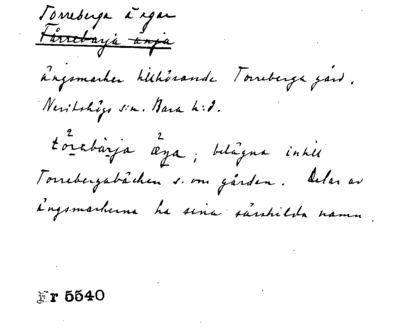 Torreberga ängar
Tårrebarja änja
ängsmarker tillhörande Torreberga gård,
Nevitshögs s:n. Bara h:d.
tòrabàrja æŋa; belägna intill
Torrebergabäcken s. om gården. Delar av
ängsmarkerna ha sina särskilda namn.
Fr 5540